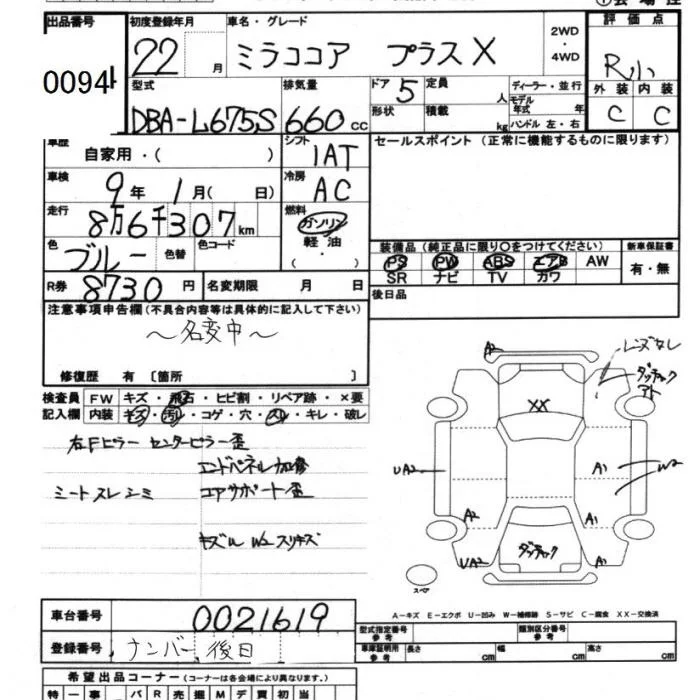 出品番号 初度登録年月 車名・グレード 2WD・4WD 評価点
0094 22月 ミラココア プラスX R小
型式 排気量 ドア 5 定員 人 ディーラー・並行 外装 内装
DBA-L675S 660cc 形状 積載 kg モデル年式 年 ハンドル 左・右 C C
車歴 自家用・( ) シフト 1AT セールスポイント (正常に機能するものに限ります)
車検 9年 1月( 日) 冷房 AC
走行 8万6千307km 燃料 ガソリン
軽油
・
( )
色 ブルー 色替 色コード 装備品 (純正品に限り○をつけてください) 新車保証書
PS PW ABS エアB AW 有・無
SR ナビ TV カワ
R券 8730円 名変期限 月 日 後日品
注意事項申告欄(不具合内容等は具体的に記入して下さい)
〜名変中〜
修復歴 有 〔箇所 〕
検査員 FW キズ・飛石・ヒビ割・リペア跡・×要
記入欄 内装 キズ・汚レ・コゲ・穴・スレ・キレ・破レ
右Fピラー センターピラー歪
エンドパネル加修
シートスレシミ コアサポート歪
キズ凹 W2 スリキズ
A2
レンズなし
ダッチャク
アト
XX
UA2 A1 W2
A2 A1
UA2 ダッチャク A1
スペア
A-キズ E-エクボ U-凹み W-補修跡 S-サビ C-腐食 XX-交換済
車台番号 0021619
登録番号 ナンバー後日
型式指定番号 参考 類別区分番号 参考
車庫証明用 参考 長さ cm 幅 cm 高さ cm
希望出品コーナー (コーナーは各会場により異なります。)
特 一 事 バ R 売 掘 M デ 買 初 当